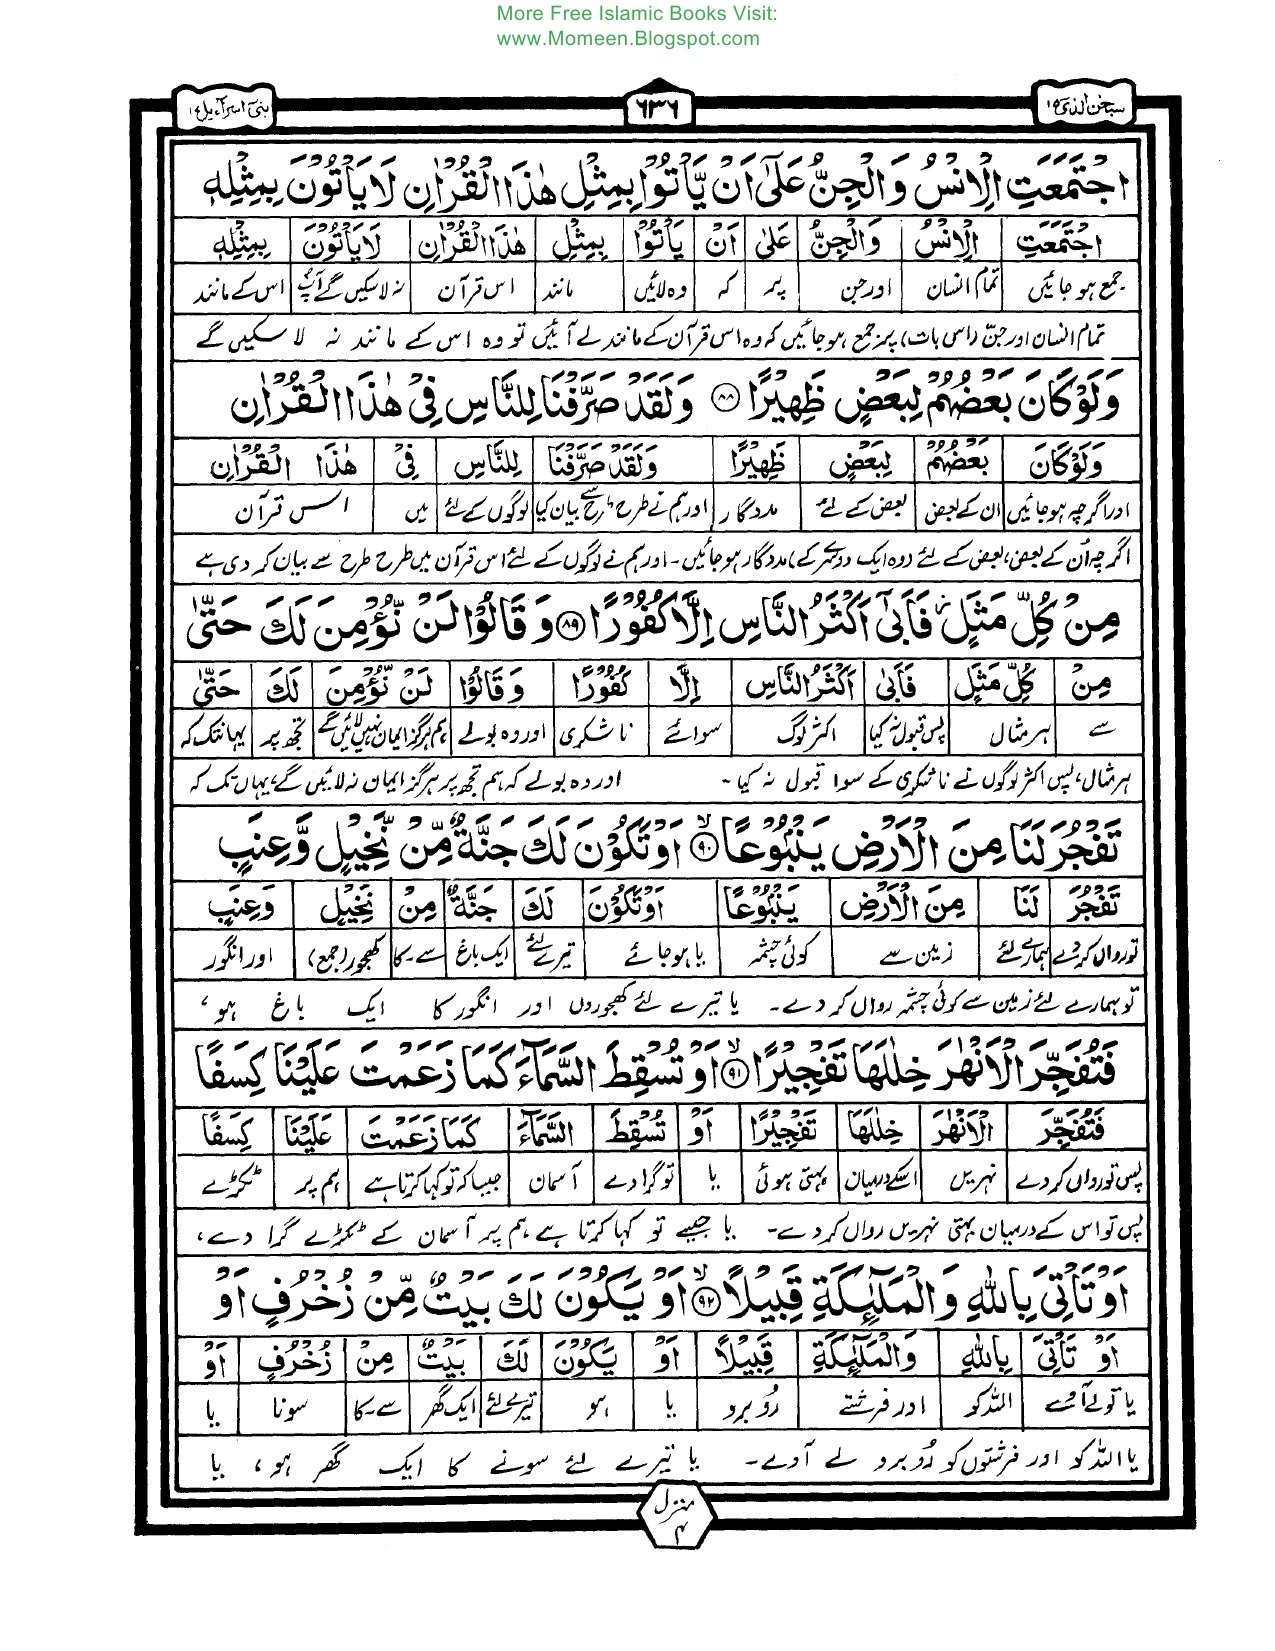 More Free Islamic Books Visit:
www.Momeen.Blogspot.com
سبحٰن الذی ۱۵
۶۳۶
بنیٓ اسرآءیل ۱۷
اجْتَمَعَتِ الْاِنْسُ وَالْجِنُّ عَلٰٓى اَنْ يَّاْتُوْا بِمِثْلِ هٰذَا الْقُرْاٰنِ لَا يَاْتُوْنَ بِمِثْلِهٖ
اجْتَمَعَتِ الْاِنْسُ وَالْجِنُّ عَلٰى اَنْ يَاْتُوْا بِمِثْلِ هٰذَا الْقُرْاٰنِ لَا يَاْتُوْنَ بِمِثْلِهٖ
جمع ہو جائیں تمام انسان اور جن پر کہ وہ لائیں مانند اس قرآن نہ لا سکیں گے اس کے مانند
تمام انسان اور جنّ (اس بات) پر جمع ہو جائیں کہ وہ اس قرآن کے مانند لے آئیں تو وہ اس کے مانند نہ لا سکیں گے
وَلَوْ كَانَ بَعْضُهُمْ لِبَعْضٍ ظَهِيْرًا ۸۸ وَلَقَدْ صَرَّفْنَا لِلنَّاسِ فِيْ هٰذَا الْقُرْاٰنِ
وَلَوْ كَانَ بَعْضُهُمْ لِبَعْضٍ ظَهِيْرًا وَلَقَدْ صَرَّفْنَا لِلنَّاسِ فِيْ هٰذَا الْقُرْاٰنِ
اور اگرچہ ہو جائیں ان کے بعض بعض کے لئے مددگار اور ہم نے طرح طرح سے بیان کیا لوگوں کے لئے میں اس قرآن
اگرچہ اُن کے بعض، بعض کے لئے (وہ ایک دوسرے کے) مددگار ہو جائیں۔ اور ہم نے لوگوں کے لئے اس قرآن میں طرح طرح سے بیان کر دی ہے
مِنْ كُلِّ مَثَلٍ فَاَبٰٓى اَكْثَرُ النَّاسِ اِلَّا كُفُوْرًا ۸۹ وَقَالُوْا لَنْ نُّؤْمِنَ لَكَ حَتّٰى
مِنْ كُلِّ مَثَلٍ فَاَبٰٓى اَكْثَرُ النَّاسِ اِلَّا كُفُوْرًا وَقَالُوْا لَنْ نُّؤْمِنَ لَكَ حَتّٰى
سے ہر مثال پس قبول نہ کیا اکثر لوگ سوائے ناشکری اور وہ بولے ہم ہرگز ایمان نہیں لائیں گے تجھ پر یہانتک کہ
ہر مثال، پس اکثر لوگوں نے ناشکری کے سوا قبول نہ کیا۔ اور وہ بولے کہ ہم تجھ پر ہرگز ایمان نہ لائیں گے، یہاں تک کہ
تَفْجُرَ لَنَا مِنَ الْاَرْضِ يَنْۢبُوْعًا ۹۰ اَوْ تَكُوْنَ لَكَ جَنَّةٌ مِّنْ نَّخِيْلٍ وَّعِنَبٍ
تَفْجُرَ لَنَا مِنَ الْاَرْضِ يَنْۢبُوْعًا اَوْ تَكُوْنَ لَكَ جَنَّةٌ مِنْ نَّخِيْلٍ وَعِنَبٍ
تو رواں کر دے ہمارے لئے زمین سے کوئی چشمہ یا ہو جائے تیرے لئے ایک باغ سے۔کا کھجور (جمع) اور انگور
تو ہمارے لئے زمین سے کوئی چشمہ رواں کر دے۔ یا تیرے لئے کھجوروں اور انگور کا ایک باغ ہو،
فَتُفَجِّرَ الْاَنْهٰرَ خِلٰلَهَا تَفْجِيْرًا ۹۱ اَوْ تُسْقِطَ السَّمَآءَ كَمَا زَعَمْتَ عَلَيْنَا كِسَفًا
فَتُفَجِّرَ الْاَنْهٰرَ خِلٰلَهَا تَفْجِيْرًا اَوْ تُسْقِطَ السَّمَآءَ كَمَا زَعَمْتَ عَلَيْنَا كِسَفًا
پس تو رواں کر دے نہریں اسکے درمیان بہتی ہوئی یا تو گرا دے آسمان جیسا کہ تو کہا کرتا ہے ہم پر ٹکڑے
پس تو اس کے درمیان بہتی نہریں رواں کر دے۔ یا جیسے تو کہا کرتا ہے ہم پر آسمان کے ٹکڑے گرا دے،
اَوْ تَاْتِيَ بِاللّٰهِ وَالْمَلٰٓئِكَةِ قَبِيْلًا ۹۲ اَوْ يَكُوْنَ لَكَ بَيْتٌ مِّنْ زُخْرُفٍ اَوْ
اَوْ تَاْتِيَ بِاللّٰهِ وَالْمَلٰٓئِكَةِ قَبِيْلًا اَوْ يَكُوْنَ لَكَ بَيْتٌ مِنْ زُخْرُفٍ اَوْ
یا تو لے آئے اللہ کو اور فرشتے رُوبرو یا ہو تیرے لئے ایک گھر سے۔کا سونا یا
یا اللہ کو اور فرشتوں کو رُوبرو لے آوے۔ یا تیرے لئے سونے کا ایک گھر ہو، یا
منزل
۴